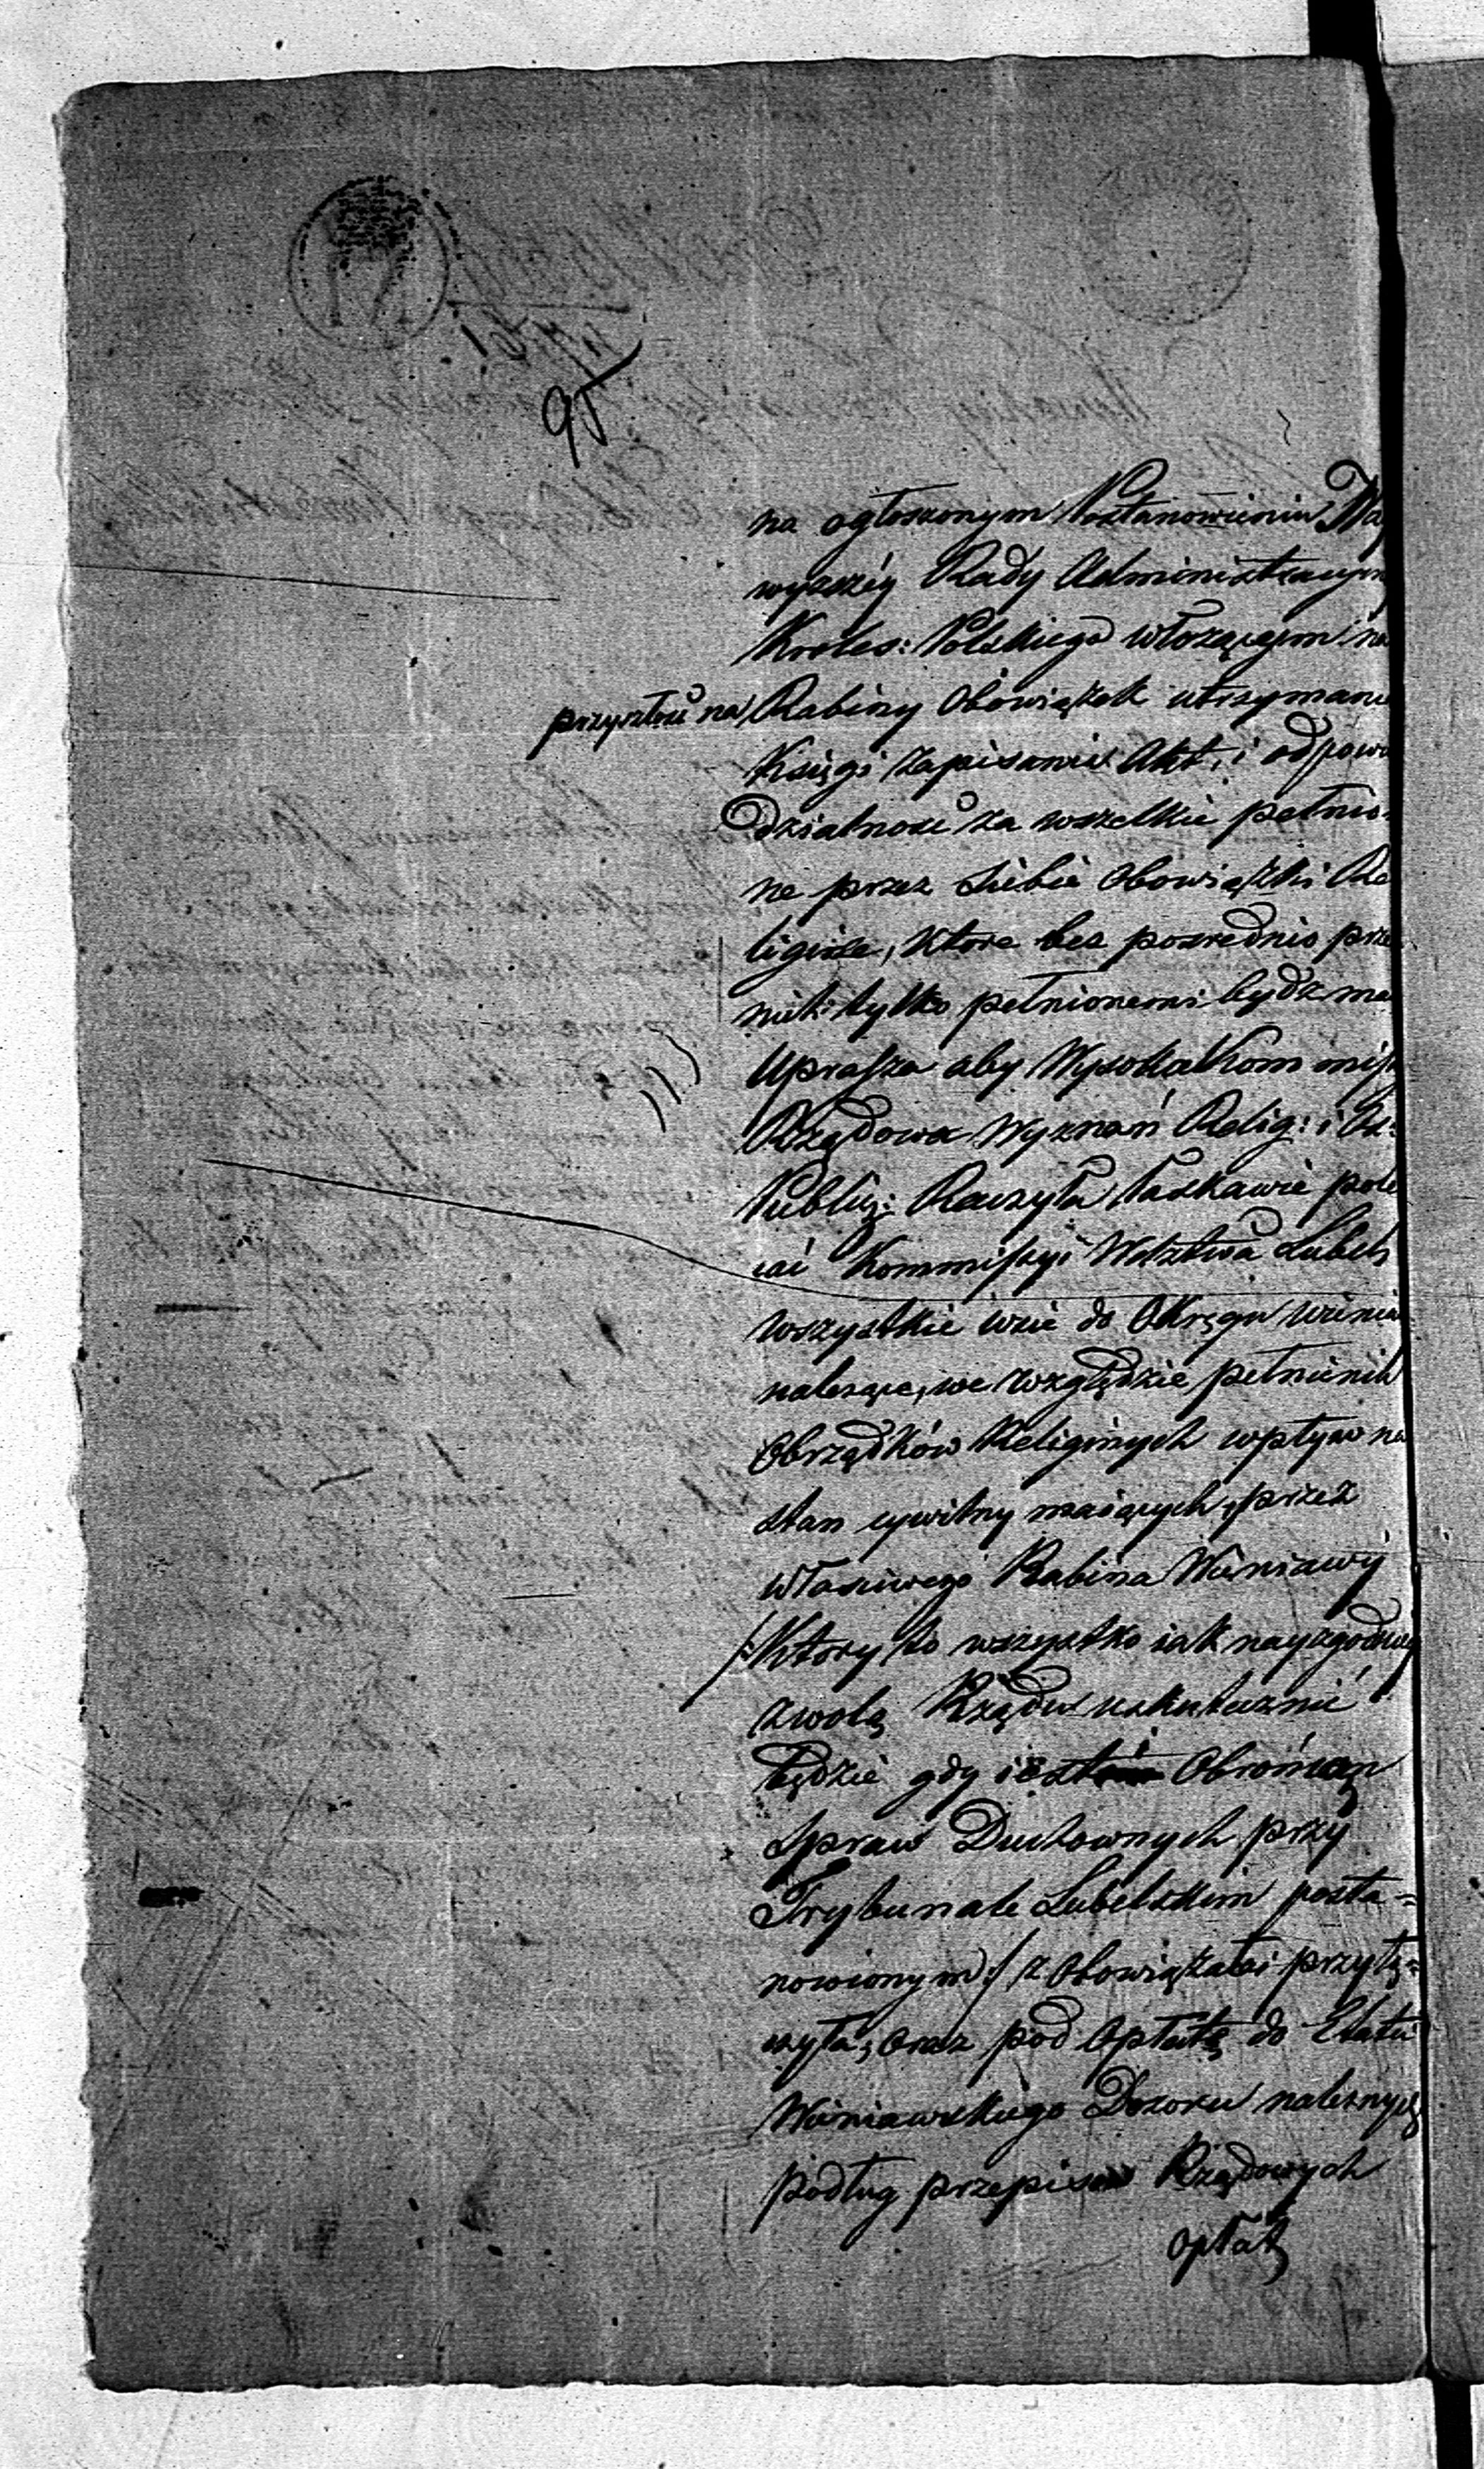 95
na ogłoszonym Postanowieniu Nay
wyzszéy Rady Administracyiney
Kroles: Polskiego włożącym na
przyszłość na Rabiny Obowiązek utrzymanie
Księgi Zapisania Akt, i odpowie
dzialność za wszelkie pełnio-
ne przez siebie Obowiązki Re
ligine, Ktore bez pozrednio prze
nich tylko pełnionemi bydź ma
Uprasza aby Wysoka Kommis
Rządowa Wyznań Relig: i Os:
Publicz: Raczyła łaskawie pole
cać Kommissyi Wdztwa Lubels
wszystkie wsie do Okręgu wieniaw
należące, we względzie pełnienia
Obrządków Religinych wpływ na
stan cywilny maiących, przez
własciwego Rabina Wieniawy
/:Ktory to wszystko iak nayzgodniey
z wolą Rządu uskutecznić
będzie gdy iest Obrońcą
Spraw Duchownych przy
Trybunale Lubelskim posta-
nowionym:/ z Obowiązałoi przyłą-
czyła, oraz pod Opłatę do Etatu
Wieniawskiego Dozoru należnych
podług przepisów Rządowych
opłat